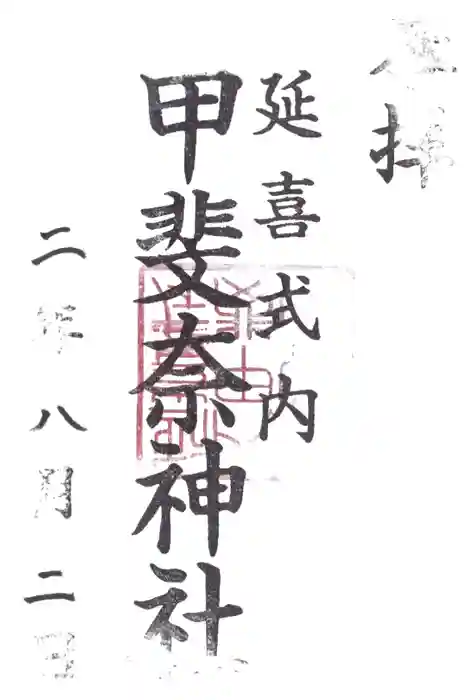 奉拝
延喜式内
甲斐奈神社
二年八月二日